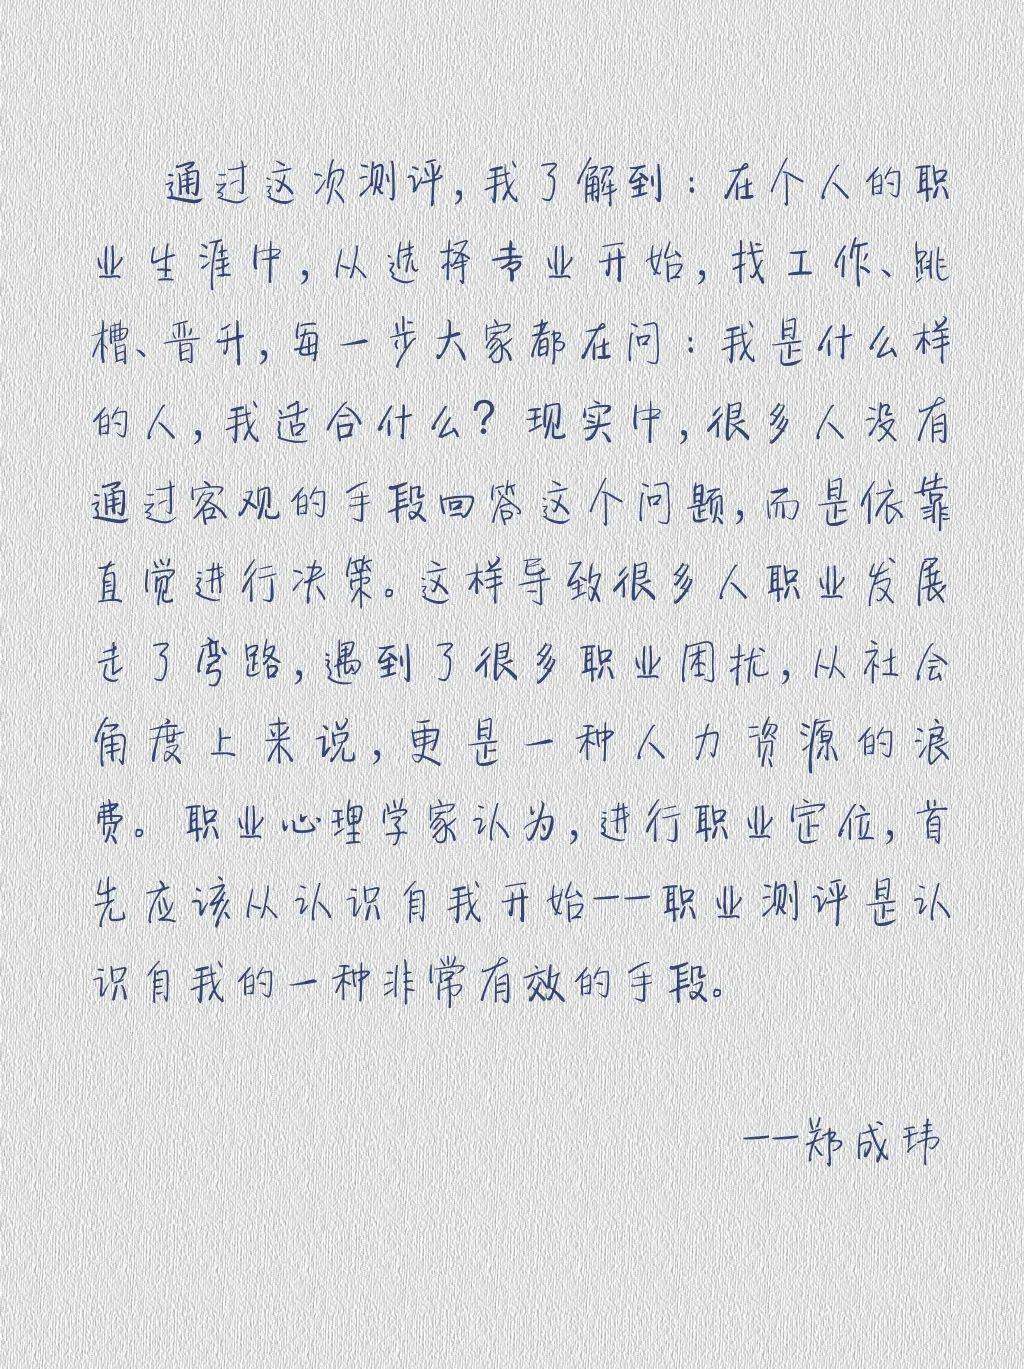 通过这次测评,我了解到:在个人的职
业生涯中,从选择专业开始,找工作、跳
槽、晋升,每一步大家都在问:我是什么样
的人,我适合什么?现实中,很多人没有
通过客观的手段回答这个问题,而是依靠
直觉进行决策。这样导致很多人职业发展
走了弯路,遇到了很多职业困扰,从社会
角度上来说,更是一种人力资源的浪
费。职业心理学家认为,进行职业定位,首
先应该从认识自我开始——职业测评是认
识自我的一种非常有效的手段。
——郑成玮